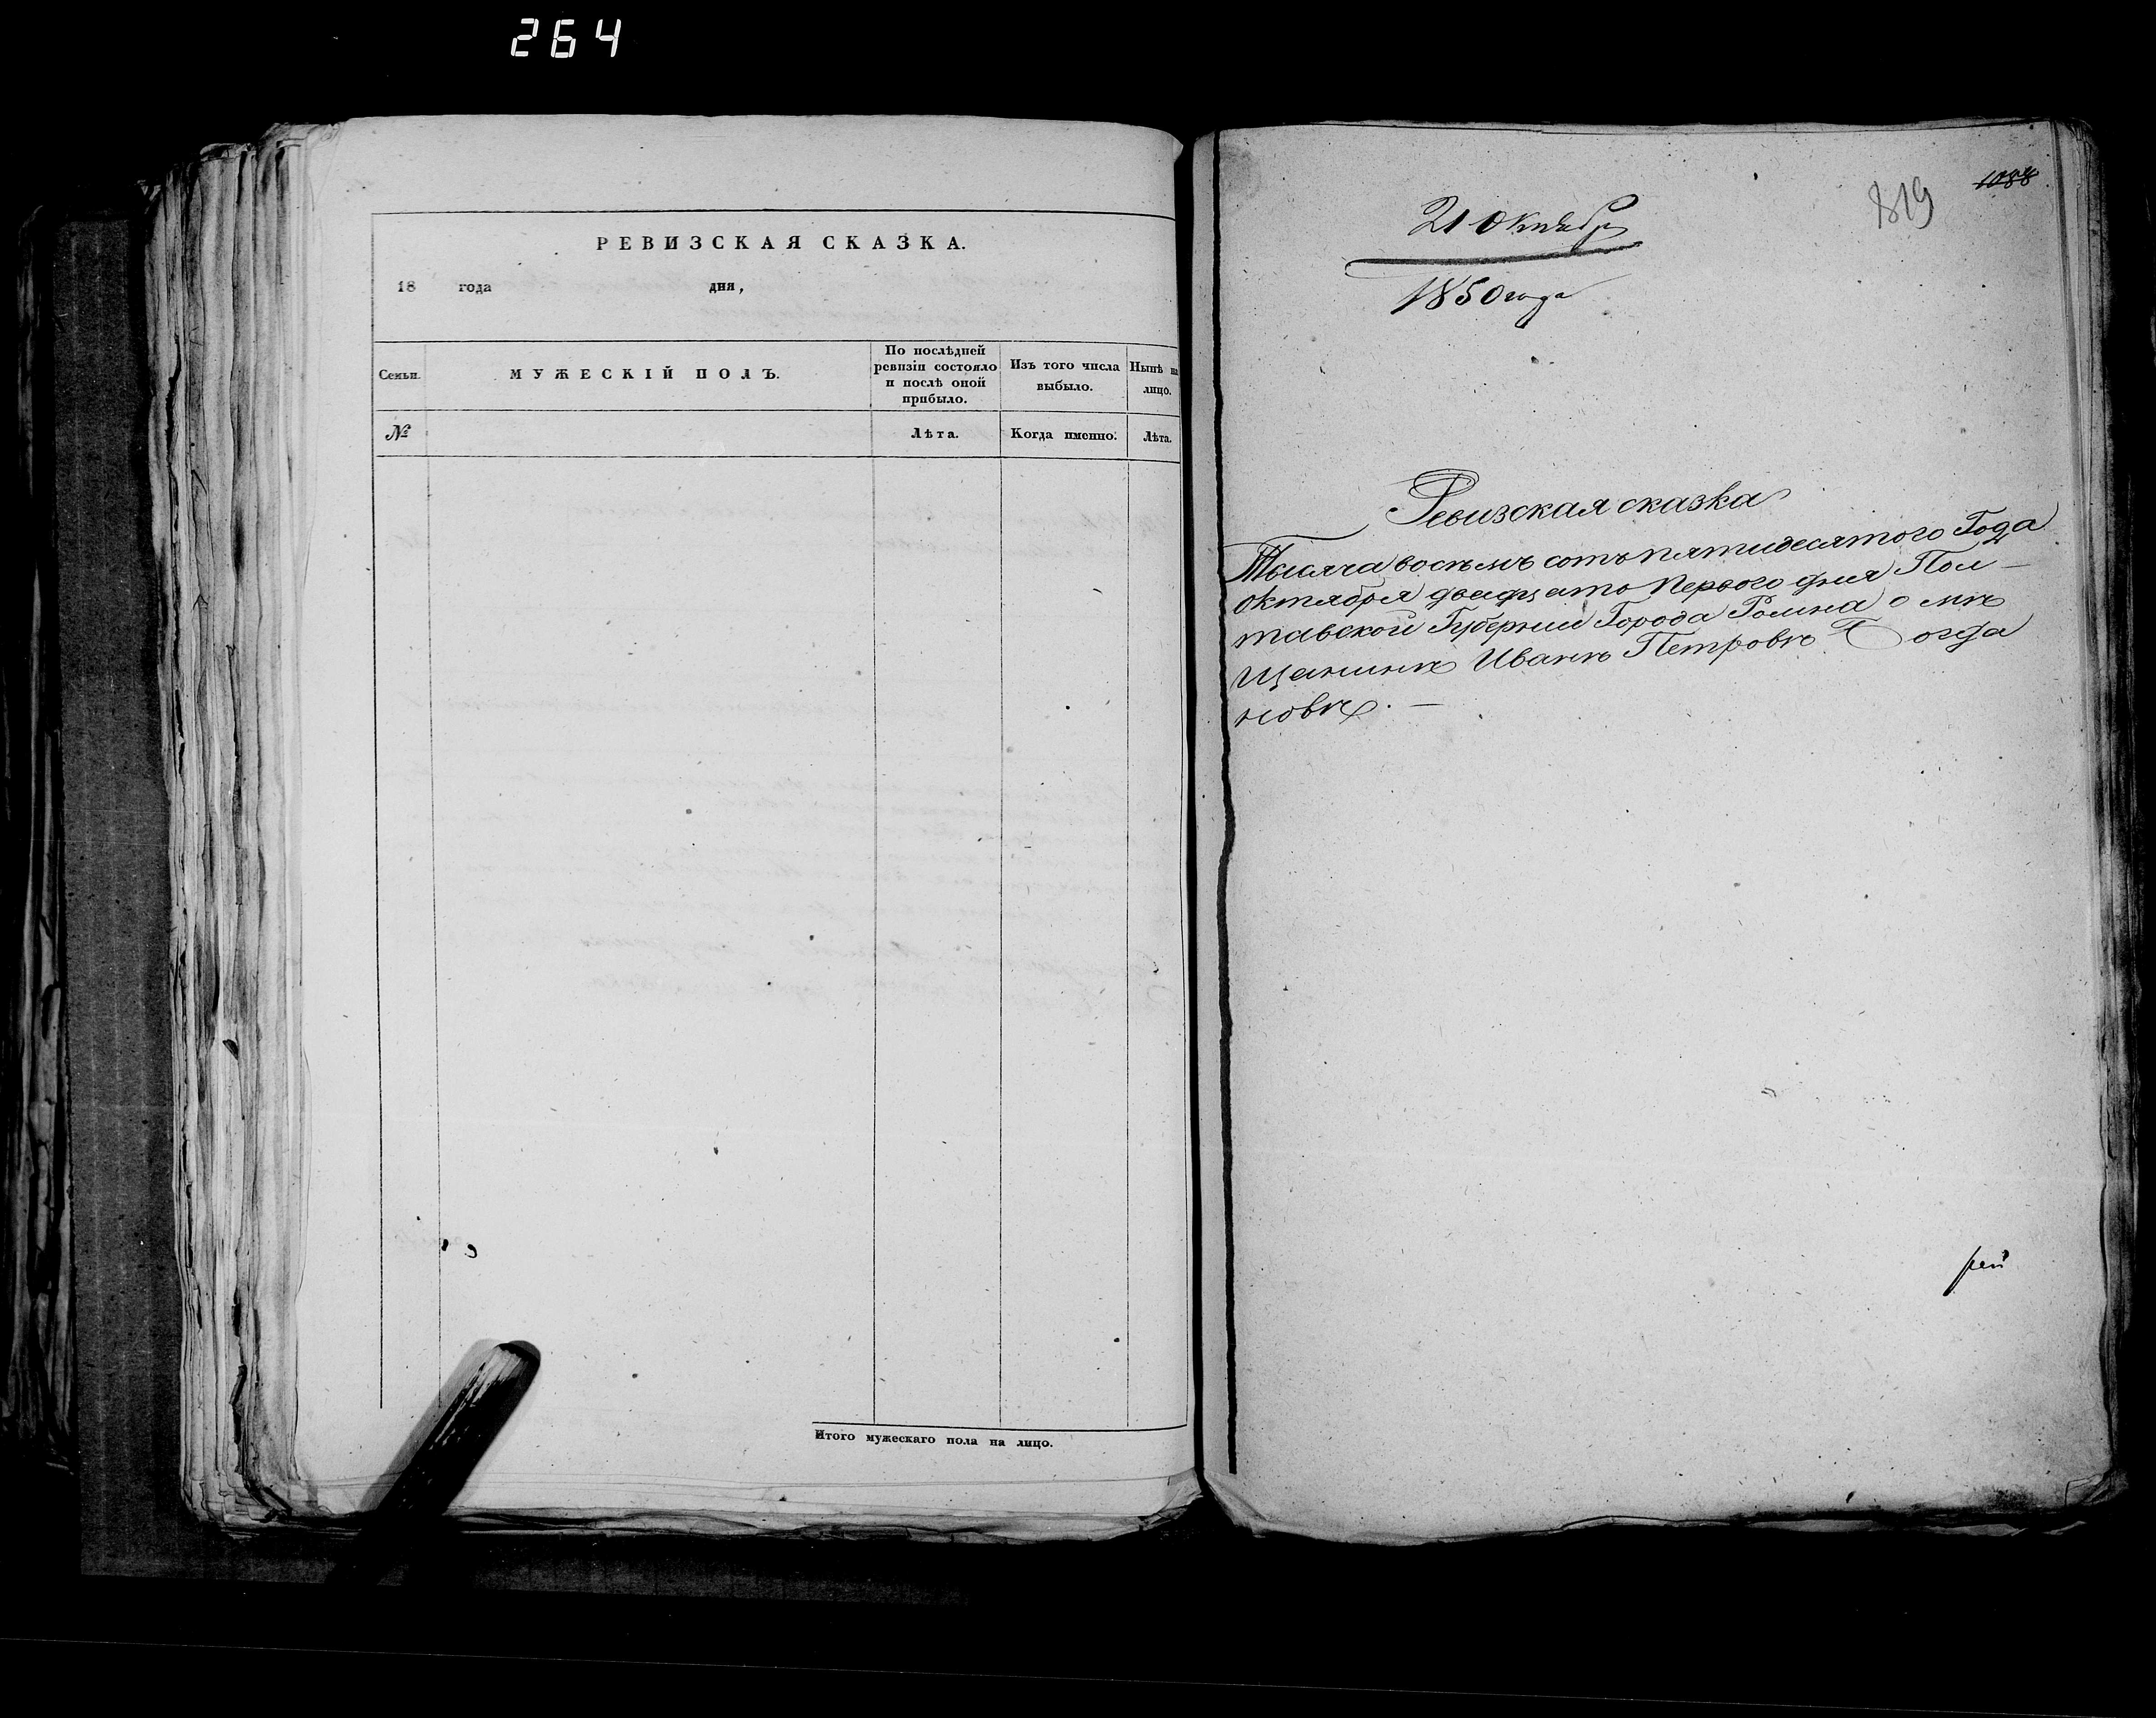 264
РЕВИЗСКАЯ СКАЗКА.
18 года дня,
Семьи.
МУЖЕСКІЙ ПОЛЪ.
По послѣдней
ревизіи состояло
и послѣ оной
прибыло.
Изъ того числа
выбыло.
Нынѣ на
лицо.
№
Лѣта.
Когда именно.
Лѣта.
Итого мужескаго пола на лицо.
1088
819
21 Октября
1850 года
Ревизская сказка
Тысяча восѣмъ сотъ пятидесятого Года
Октября двадцать Первого дня Пол-
тавской Губернии Города Ромна о мѣ
щанинѣ Иванѣ Петровѣ Богда
новѣ. —